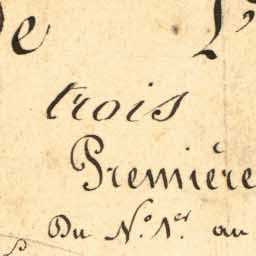 de L'
trois
Première
Du N.º 1.er au